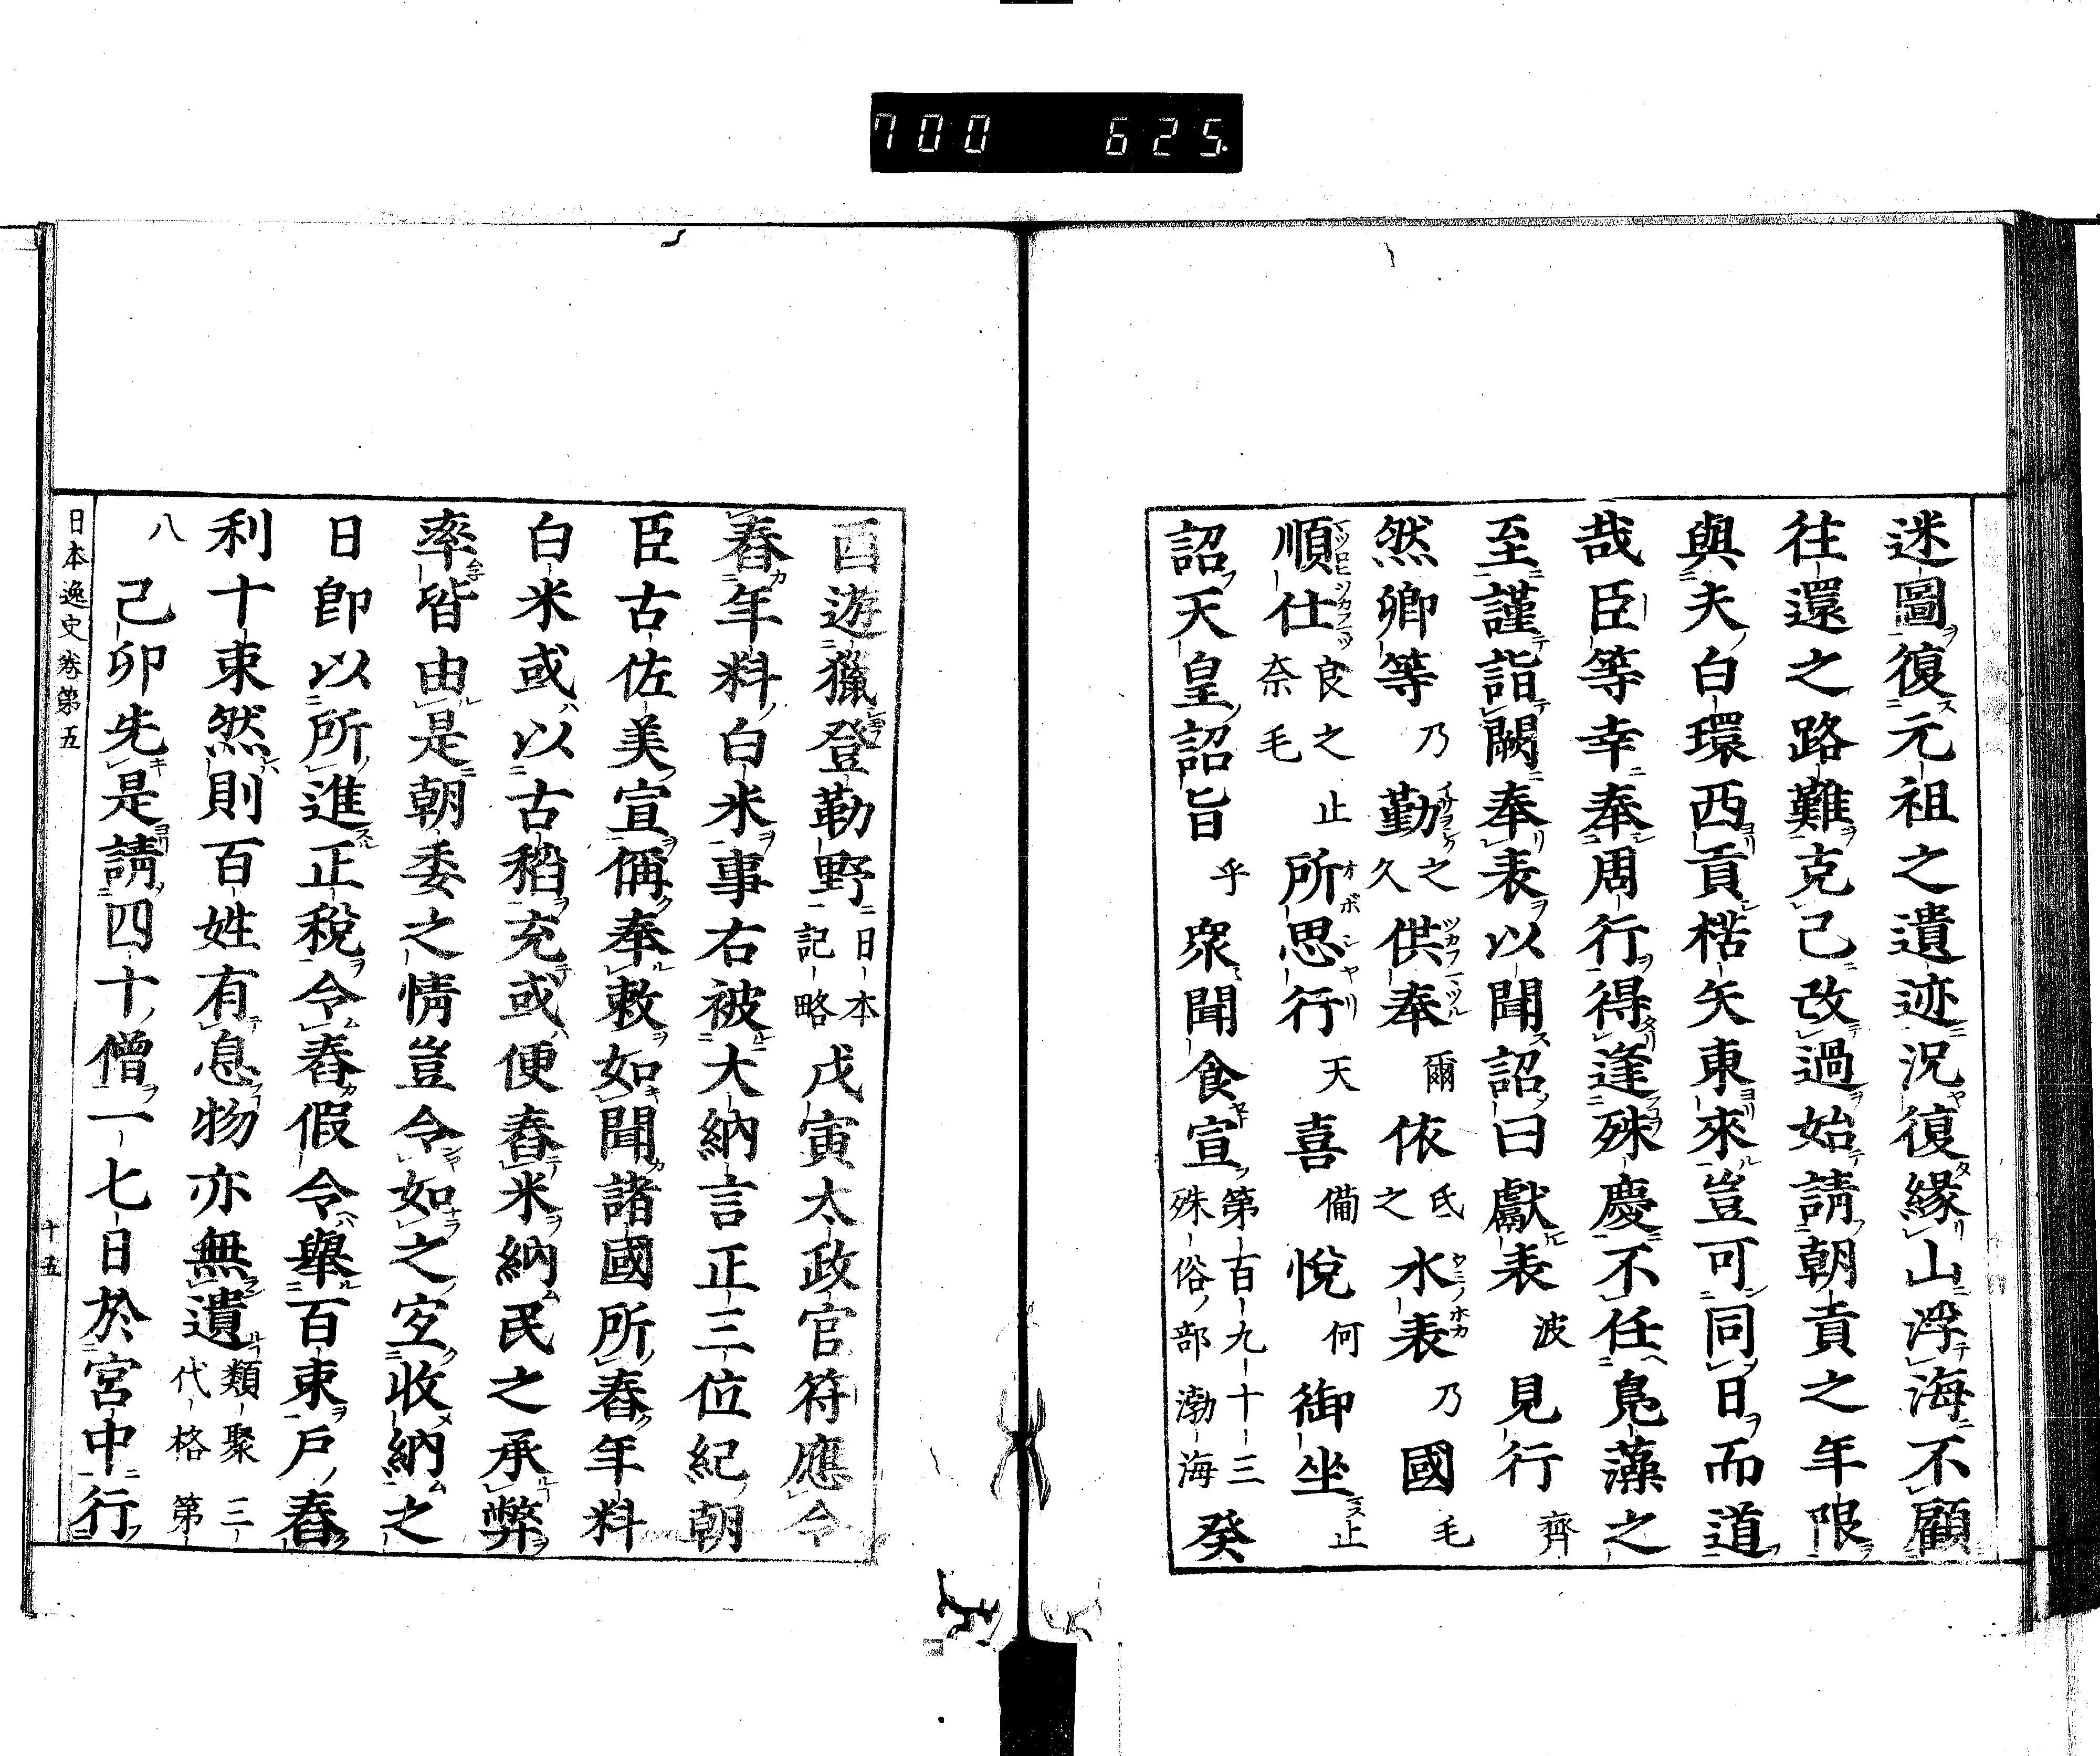 700 625
迷圖復元祖之遺迹況復緣山浮海不顧
往還之路難克己改過始請朝貢之年限
與夫白環西貢楛矢東來豈可同日而道
哉臣等幸奉周行得逢殊慶不任鳧藻之
至謹詣闕奉表以聞詔曰獻表波見行齊
然卿等乃勤之久供奉爾依氐之水表乃國毛
順仕良之奈毛止所思行天喜備悅何御坐止
詔天皇詔旨乎衆聞食宣第百九十三殊俗部渤海癸
酉遊獵登勒野日本記略戊寅太政官符應令
舂年料白米事右被大納言正三位紀朝
臣古佐美宣偁奉敕如聞諸國所舂年料
白米或以古稻充或便舂米納民之承弊
率皆由是朝委之情豈令如之宐收納之
日卽以所進正稅令舂假令舉百束戶舂
利十束然則百姓有息物亦無遺類聚三代格第
八己卯先是請四十僧一七日於宮中行
日本逸史卷第五 十五